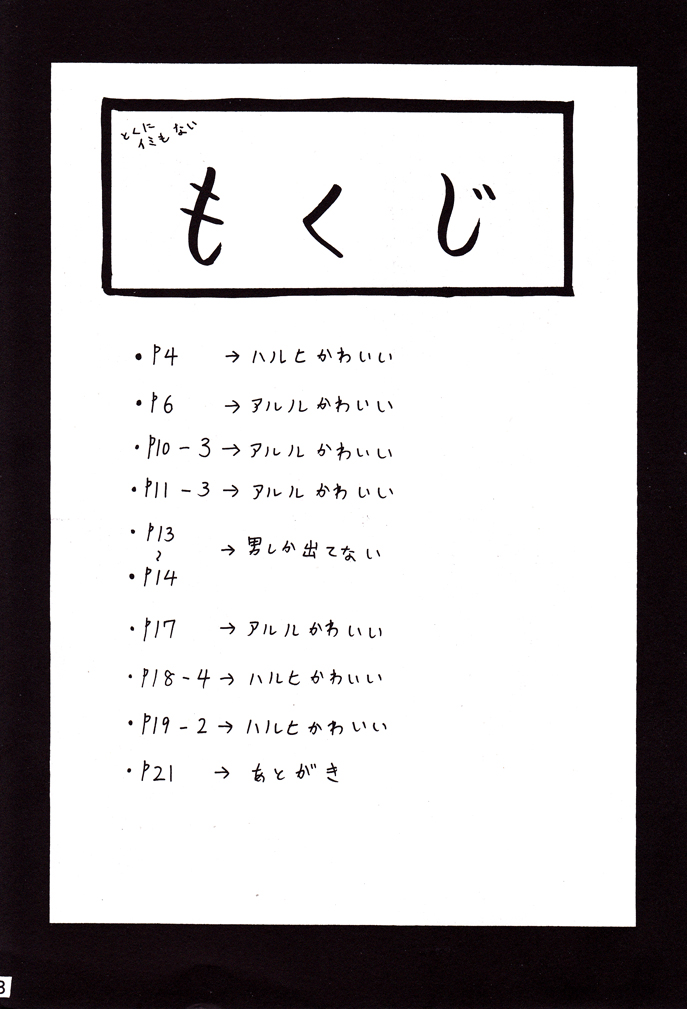 とくに
イミもない
もくじ
・P4 → ハルヒかわいい
・P6 → アルルかわいい
・P10-3 → アルルかわいい
・P11-3 → アルルかわいい
・P13
〜 → 男しか出てない
・P14
・P17 → アルルかわいい
・P18-4 → ハルヒかわいい
・P19-2 → ハルヒかわいい
・P21 → あとがき
3